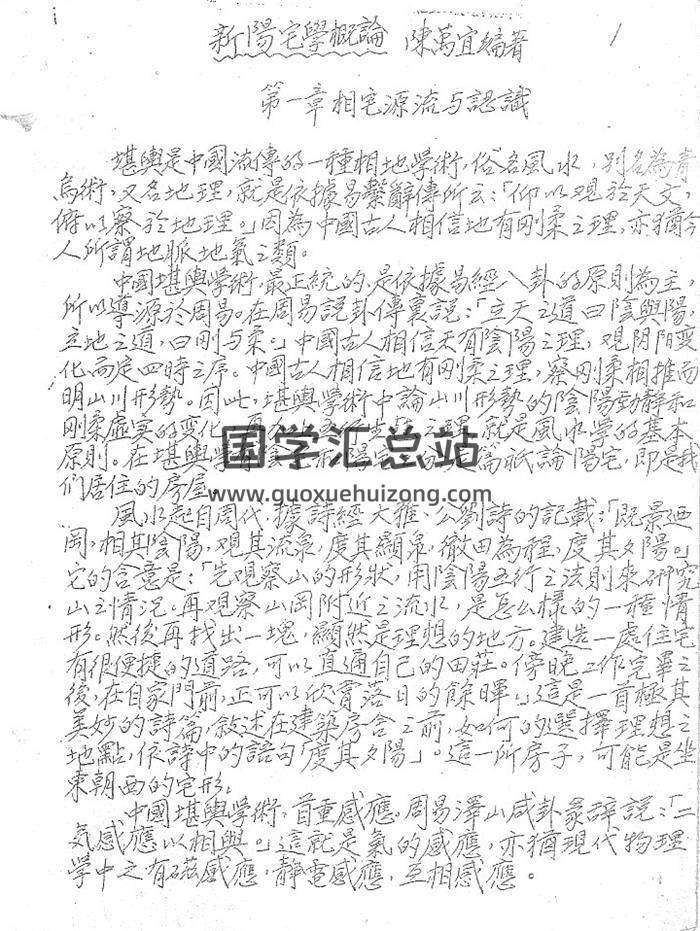 新陽宅學概論 陳萬宜編著
1
第一章相宅源流与認識
堪輿是中國流傳的一種相地學術,俗名風水,別名為青
烏術,又名地理,就是依據易繫辭傳所云:「仰以观於天文,
俯以察於地理。」因為中國古人相信地有剛柔之理,亦猶方
人所謂地脈地氣之類。
中國堪輿學術,最正統的,是依據易經八卦的原則為主,
所以導源於周易。在周易說卦傳裏說:「立天之道曰陰與陽,
立地之道,曰剛与柔。」中國古人相信天有陰陽之理,观阴阳变
化而定四時之序。中國古人相信地有剛柔之理,察剛柔相推而
明山川形勢。因此,堪輿學術中論山川形勢的陰陽動靜和
剛柔虛实的变化,之理,就是風水學的基本
原則。在堪輿學和陽宅祇論陽宅,即是我
們居住的房屋
国学汇总站
www.guoxuehuizong.com
風水起自周代,據詩經大雅公劉詩的記載:「既景迺
岡,相其陰陽,观其流泉,度其顯泉,徹田為程,度其夕陽。」
它的含意是:「先观察山的形狀,用陰陽五行之法則來研究
山之情况。再观察山岡附近之流水,是怎么樣的一種情
形。然後再找出一塊,顯然是理想的地方。建造一處住宅
有很便捷的道路,可以直通自己的田莊。傍晚工作完畢之
後,在自家門前,正可以欣賞落日的餘暉。」這是一首極其
美妙的詩篇,敘述在建築房舍之前,如何的選擇理想之
地點,依詩中的語句「度其夕陽」。這一所房子,可能是坐
東朝西的宅形。
中國堪輿學術,首重感應。周易澤山咸卦彖辞說:「二
気感應以相與。」這就是氣的感應,亦猶現代物理
學中之有磁感應,靜電感應,互相感應。